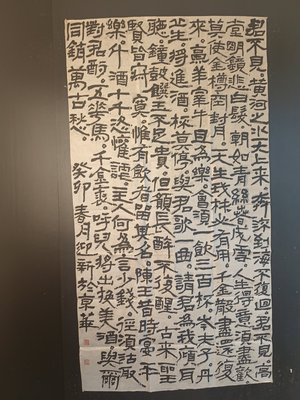 君不見黃河之水天上來奔流到海不復迴君不見高
堂明鏡悲白髮朝如青絲暮成雪人生得意須盡歡
莫使金樽空對月天生我材必有用千金散盡還復
來烹羊宰牛且為樂會須一飲三百杯岑夫子丹
丘生將進酒杯莫停與君歌一曲請君為我傾耳
聽鐘鼓饌玉不足貴但願長醉不復醒古來聖
賢皆寂寞惟有飲者留其名陳王昔時宴平
樂斗酒十千恣歡謔主人何為言少錢徑須沽取
對君酌五花馬千金裘呼兒將出換美酒與爾
同銷萬古愁 癸卯春月迎新於京華